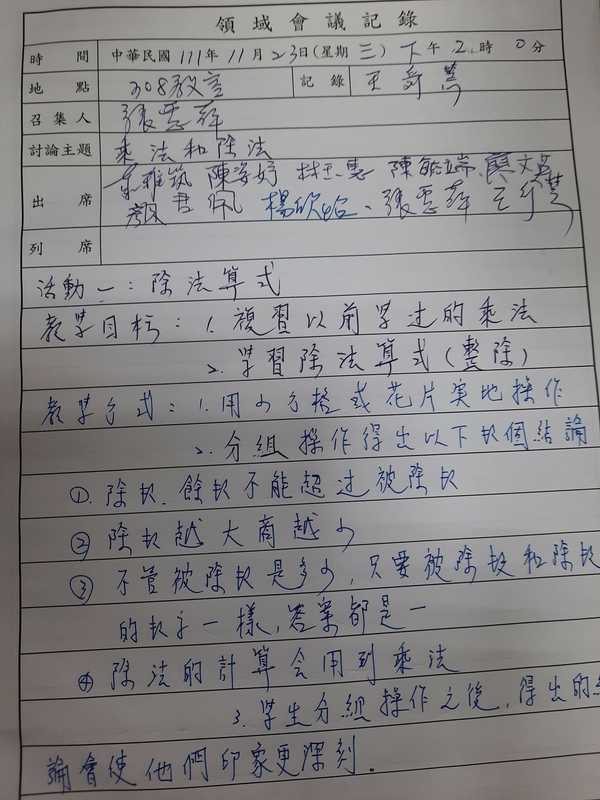 領域會議記錄
時間 中華民國 111 年 11 月 23 日(星期 三) 下午 2 時 0 分
地點 308教室 記錄 王
召集人 張惠萍
討論主題 乘法和除法
出席 雅筑 陳姿妤 陳毓端、廖文
君佩 楊欣 、張惠萍 王
列席
活動一:除法算式
教學目标:1. 複習以前学过的乘法
2. 学習除法算式(整除)
教学方式:1. 用小方格或花片实地操作
2. 分組操作得出以下放個結論
① 除放、餘放不能超过被除放
② 除放越大商越少
③ 不管被除放是多少,只要被除放和除放
的放字一樣,答案都是一
④ 除法的計算会用到乘法
3. 学生分組操作之後,得出的結
論會使他們印象更深刻.